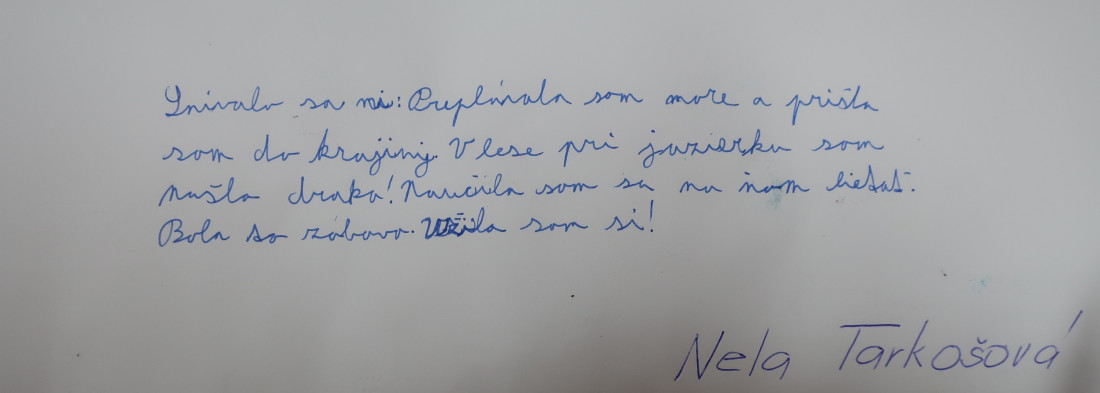 Snívalo sa mi: Preplávala som more a prišla
som do krajiny. V lese pri jazierku som
našla draka! Naučila som sa na ňom lietať.
Bola to zábava. Užila som si!
Nela Tarkošová